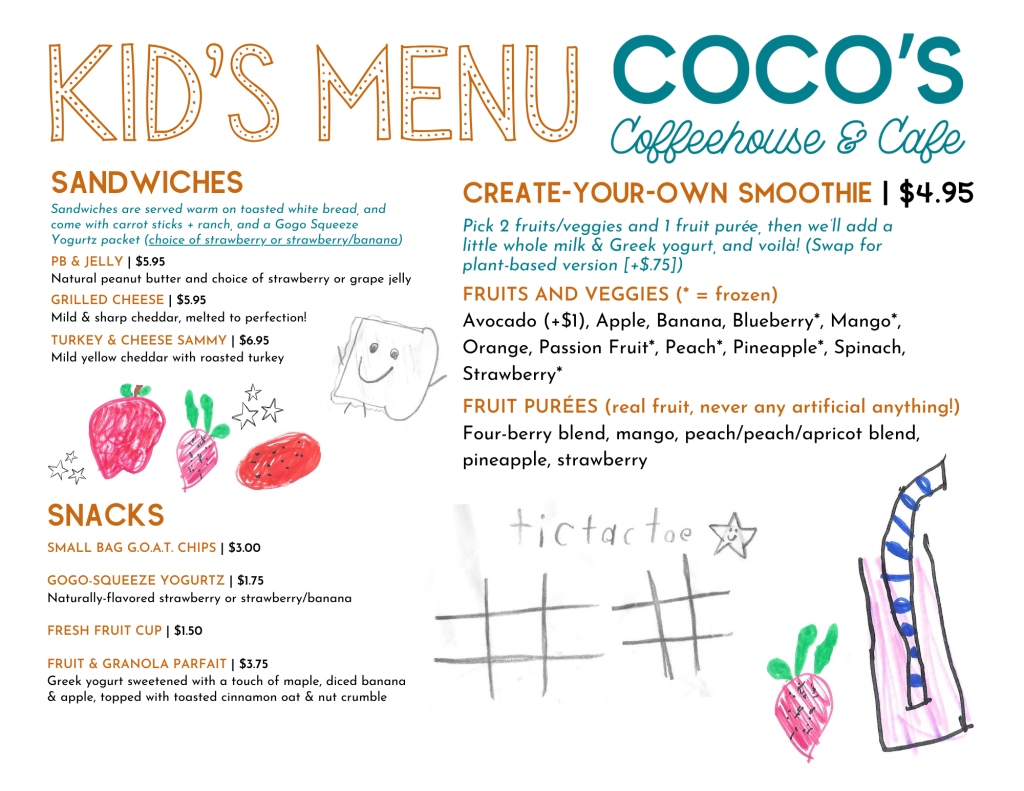 KID'S MENU
COCO'S
Coffeehouse & Cafe
SANDWICHES
Sandwiches are served warm on toasted white bread, and
come with carrot sticks + ranch, and a Gogo Squeeze
Yogurtz packet (choice of strawberry or strawberry/banana)
PB & JELLY | $5.95
Natural peanut butter and choice of strawberry or grape jelly
GRILLED CHEESE | $5.95
Mild & sharp cheddar, melted to perfection!
TURKEY & CHEESE SAMMY | $6.95
Mild yellow cheddar with roasted turkey
SNACKS
SMALL BAG G.O.A.T. CHIPS | $3.00
GOGO-SQUEEZE YOGURTZ | $1.75
Naturally-flavored strawberry or strawberry/banana
FRESH FRUIT CUP | $1.50
FRUIT & GRANOLA PARFAIT | $3.75
Greek yogurt sweetened with a touch of maple, diced banana
& apple, topped with toasted cinnamon oat & nut crumble
CREATE-YOUR-OWN SMOOTHIE | $4.95
Pick 2 fruits/veggies and 1 fruit purée, then we'll add a
little whole milk & Greek yogurt, and voilà! (Swap for
plant-based version [+$.75])
FRUITS AND VEGGIES (* = frozen)
Avocado (+$1), Apple, Banana, Blueberry*, Mango*,
Orange, Passion Fruit*, Peach*, Pineapple*, Spinach,
Strawberry*
FRUIT PURÉES (real fruit, never any artificial anything!)
Four-berry blend, mango, peach/peach/apricot blend,
pineapple, strawberry
tictactoe